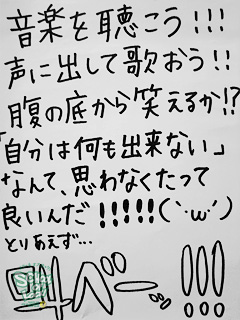 音楽を聴こう!!!
声に出して歌おう!!
腹の底から笑えるか!?
「自分は何も出来ない」
なんて、思わなくたって
良いんだ!!!!!(`・ω・´)
とりあえず…
叫べー!!!